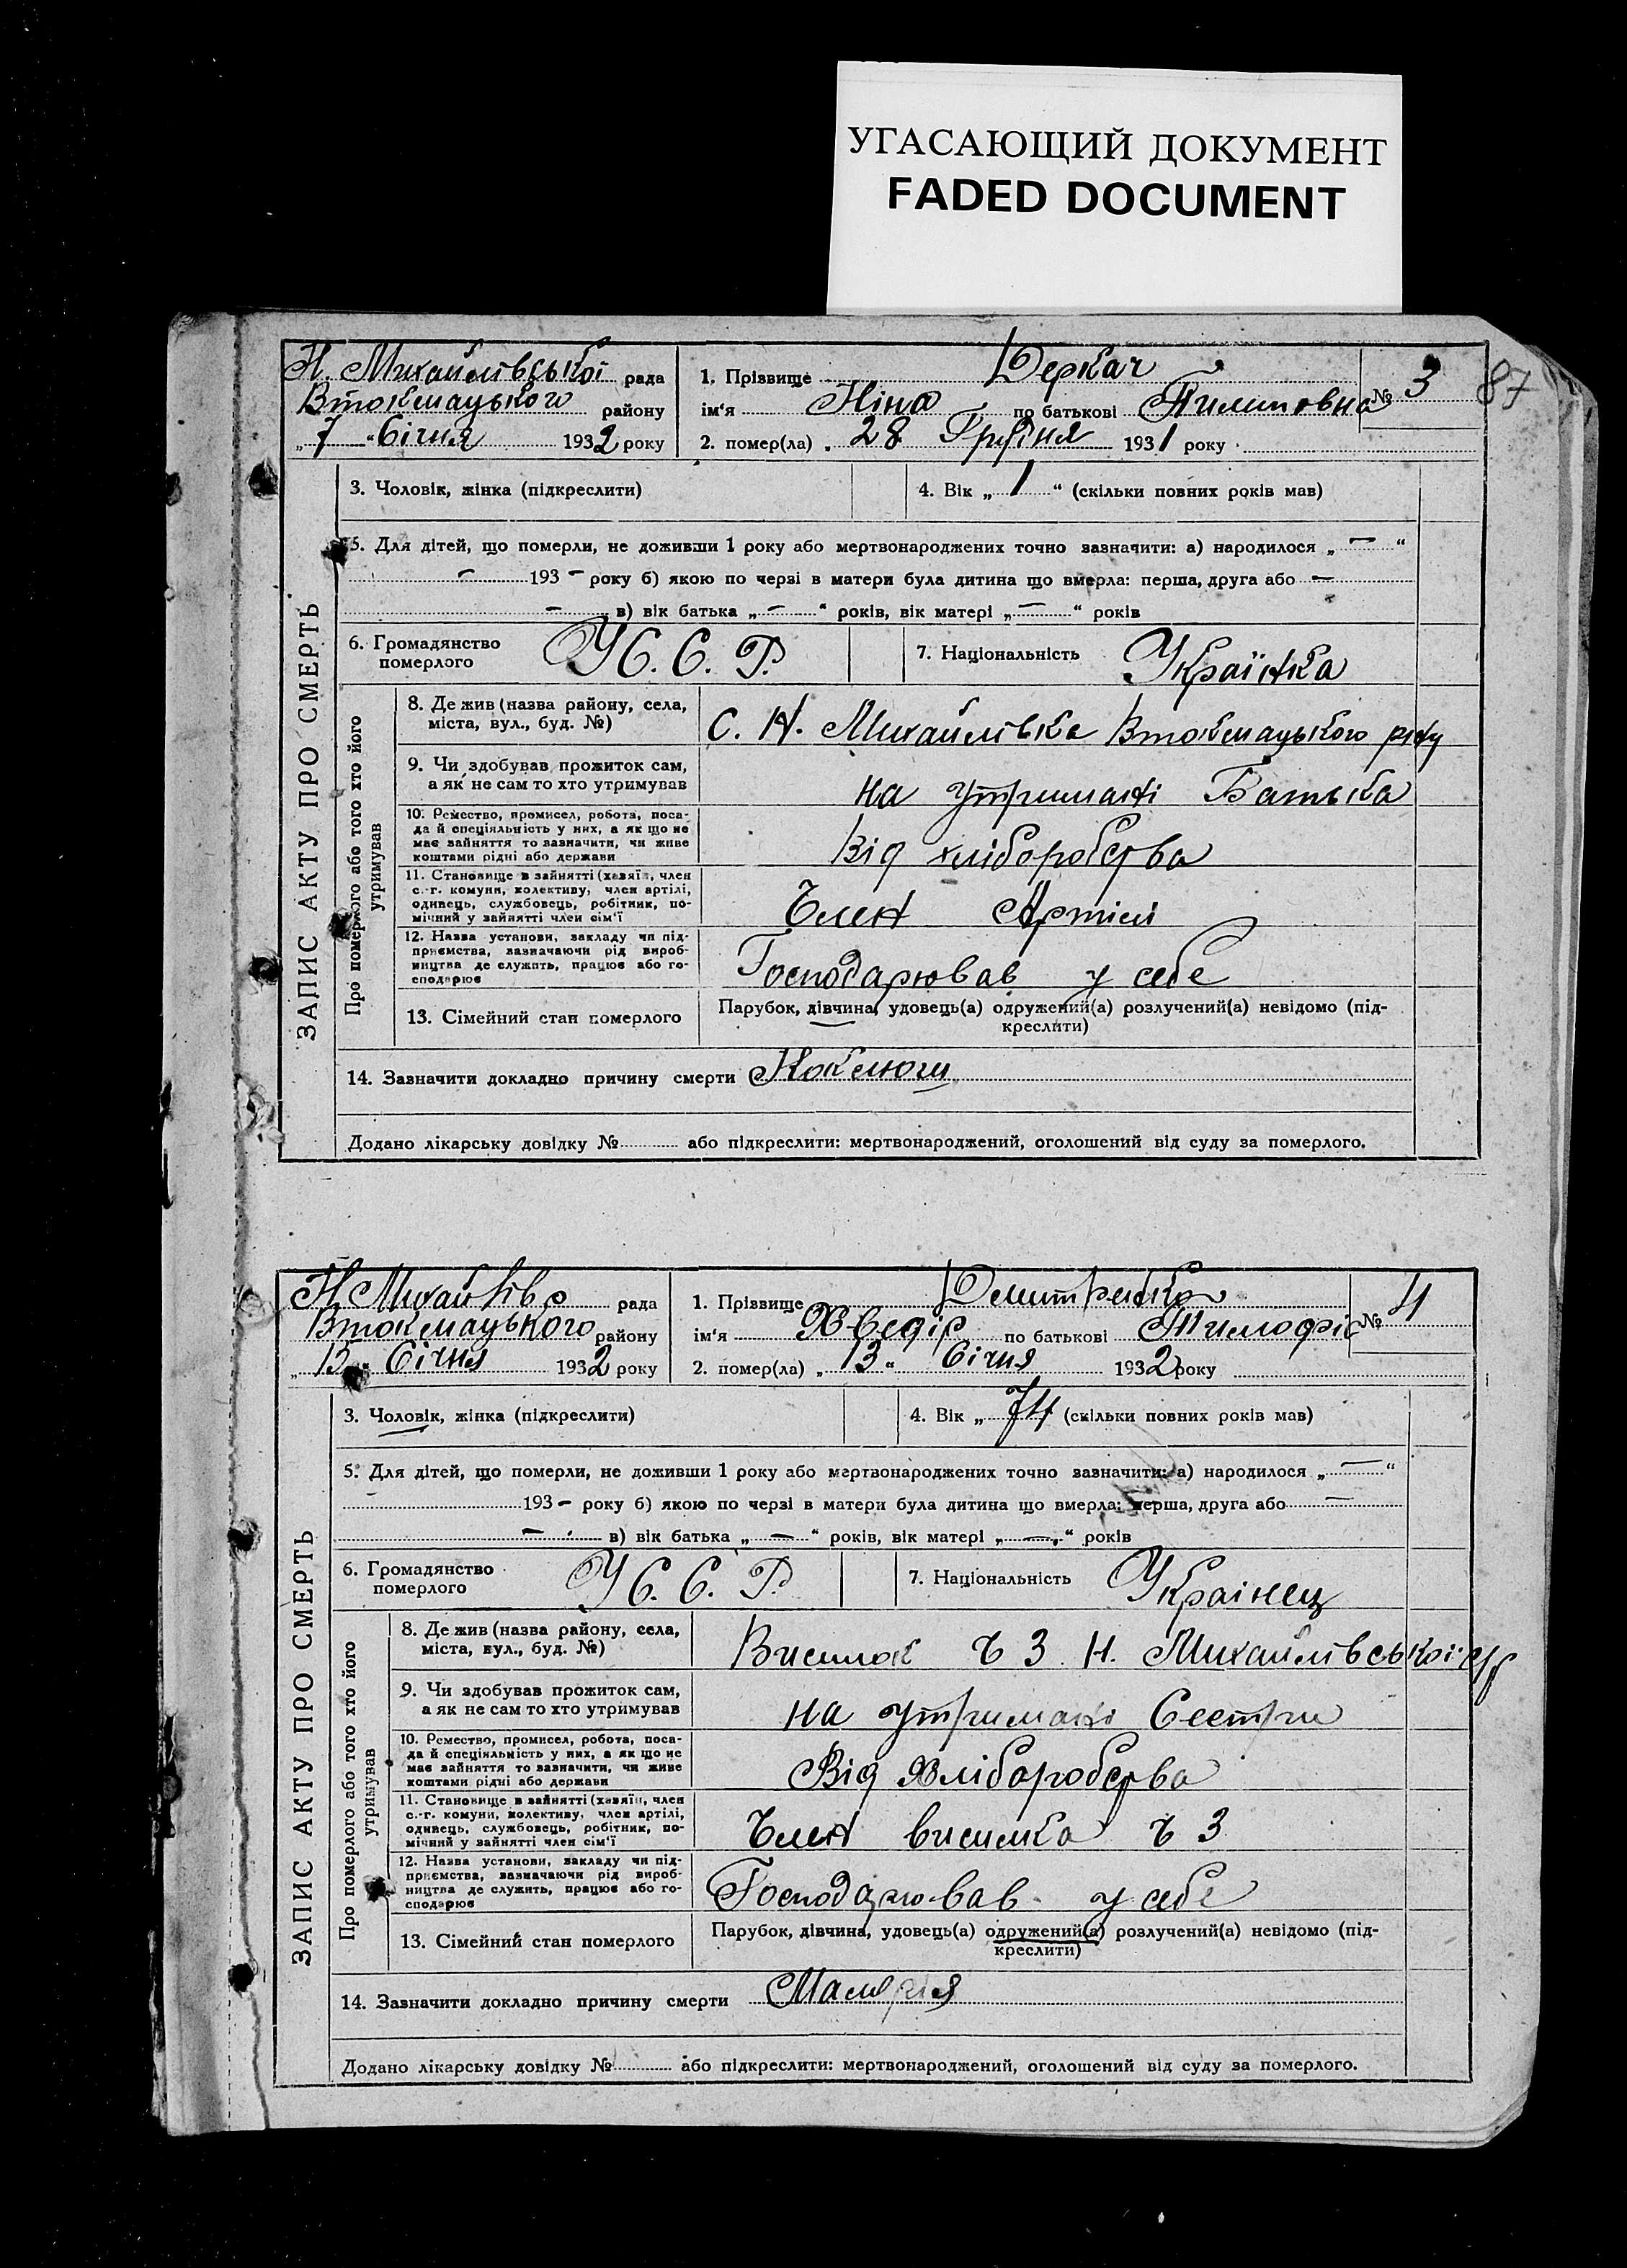 УГАСАЮЩИЙ ДОКУМЕНТ
FADED DOCUMENT
87
Н. Михайлівської рада
Втокмацького району
„7“ Січня 1932 року
1. Прізвище Деркач
№ 3
ім'я Ніна по батькові Пилиповна
2. помер(ла) „28 Грудня 1931 року
ЗАПИС АКТУ ПРО СМЕРТЬ
3. Чоловік, жінка (підкреслити)
4. Вік „1“ (скільки повних років мав)
5. Для дітей, що померли, не доживши 1 року або мертвонароджених точно зазначити: а) народилося „—“
— 193— року б) якою по черзі в матери була дитина що вмерла: перша, друга або —
— в) вік батька „—“ років, вік матері „—“ років
6. Громадянство
померлого
У С. С. Р.
7. Національність Українка
Про померлого або того хто його
утримував
8. Де жив (назва району, села,
міста, вул., буд. №)
с. Н. Михайлівка Втокмацького р-ну
9. Чи здобував прожиток сам,
а як не сам то хто утримував
на утримані Батька
10. Ремество, промисел, робота, поса-
да й спеціяльність у них, а як що не
має зайняття то зазначити, чи живе
коштами рідні або держави
Від хліборобства
11. Становище в зайнятті (хазяїн, член
с.-г. комуни, колективу, член артілі,
одинець, службовець, робітник, по-
мічний у зайнятті член сім'ї
Член Артілі
12. Назва установи, закладу чи під-
приємства, зазначаючи рід вироб-
ництва де служить, працює або го-
сподарює
Господарював у себе
13. Сімейний стан померлого
Парубок, дівчина, удовець(а) одружений(а) розлучений(а) невідомо (під-
креслити)
14. Зазначити докладно причину смерти Коклюш
Додано лікарську довідку № або підкреслити: мертвонароджений, оголошений від суду за померлого.
Н Михайлівс рада
Втокмацького району
„13“ Січня 1932 року
1. Прізвище Дмитренко
№ 4
ім'я Хведір по батькові Тимофіє
2. помер(ла) „13“ Січня 1932 року
ЗАПИС АКТУ ПРО СМЕРТЬ
3. Чоловік, жінка (підкреслити)
4. Вік „74 (скільки повних років мав)
5. Для дітей, що померли, не доживши 1 року або мертвонароджених точно зазначити: а) народилося „—“
193— року б) якою по черзі в матери була дитина що вмерла: перша, друга або —
— в) вік батька „—“ років, вік матері „—“ років
6. Громадянство
померлого
У С. С. Р.
7. Національність Українец
Про померлого або того хто його
утримував
8. Де жив (назва району, села,
міста, вул., буд. №)
Висилок Ч 3 Н. Михайлівської с/р
9. Чи здобував прожиток сам,
а як не сам то хто утримував
на утримані Сестри
10. Ремество, промисел, робота, поса-
да й спеціяльність у них, а як що не
має зайняття то зазначити, чи живе
коштами рідні або держави
Від Хліборобства
11. Становище в зайнятті (хазяїн, член
с.-г. комуни, колективу, член артілі,
одинець, службовець, робітник, по-
мічний у зайнятті член сім'ї
Член висилка Ч 3
12. Назва установи, закладу чи під-
приємства, зазначаючи рід вироб-
ництва де служить, працює або го-
сподарює
Господарював у себе
13. Сімейний стан померлого
Парубок, дівчина, удовець(а) одружений(а) розлучений(а) невідомо (під-
креслити)
14. Зазначити докладно причину смерти Малярия
Додано лікарську довідку № або підкреслити: мертвонароджений, оголошений від суду за померлого.